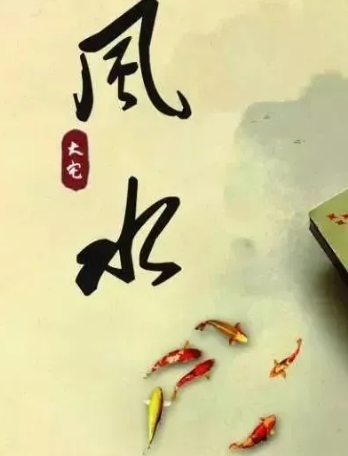 風
大宅
水